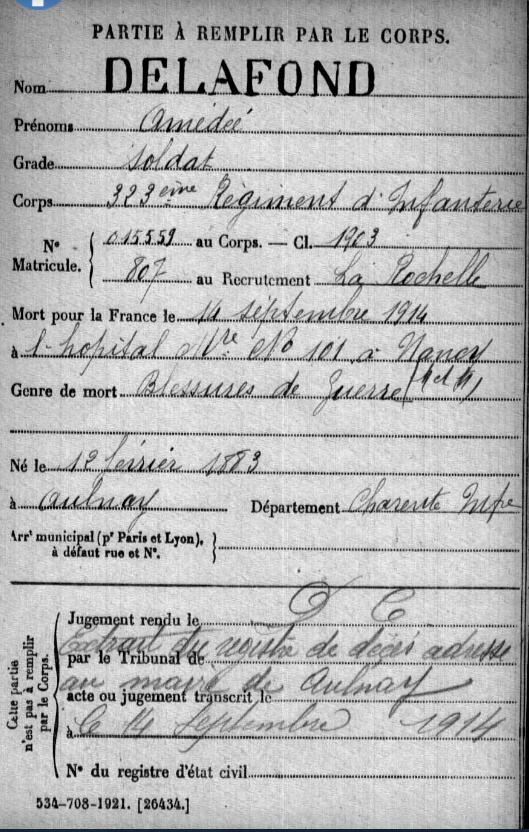 PARTIE À REMPLIR PAR LE CORPS.
Nom DELAFOND
Prénoms Amédée
Grade Soldat
Corps 323ème Régiment d'Infanterie
N° Matricule. 015559 au Corps. — Cl. 1903
807 au Recrutement La Rochelle
Mort pour la France le 14 septembre 1914
à l'hopital Mre No 101 à Nancy
Genre de mort Blessures de Guerre
Né le 12 février 1883
à Aulnay Département Charente Infre
Arrt municipal (pr Paris et Lyon), à défaut rue et N°.
D C
Jugement rendu le
Extrait du registre de décès adressé
par le Tribunal de
au maire de Aulnay
acte ou jugement transcrit le
à le 14 Septembre 1914
N° du registre d'état civil
Cette partie n'est pas à remplir par le Corps.
534-708-1921. [26434.]